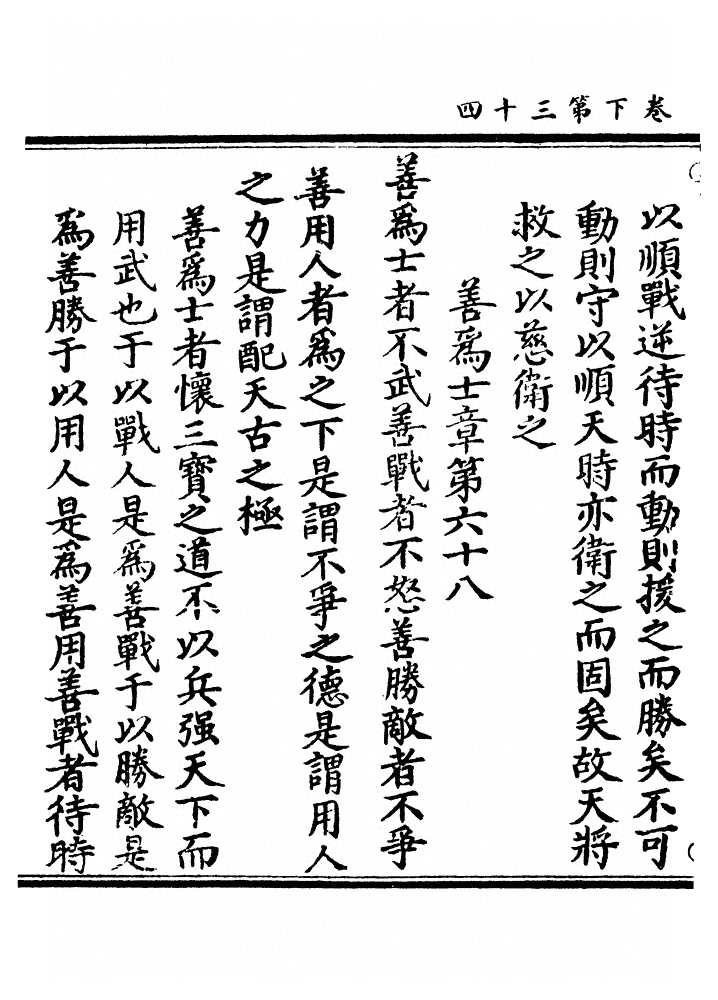 卷下第三十四
以順戰逆待時而動則援之而勝矣不可
動則守以順天時亦衛之而固矣故天將
救之以慈衛之
善爲士章第六十八
善爲士者不武善戰者不怒善勝敵者不爭
善用人者爲之下是謂不爭之德是謂用人
之力是謂配天古之極
善爲士者懷三寶之道不以兵强天下而
用武也于以戰人是爲善戰于以勝敵是
爲善勝于以用人是爲善用善戰者待時